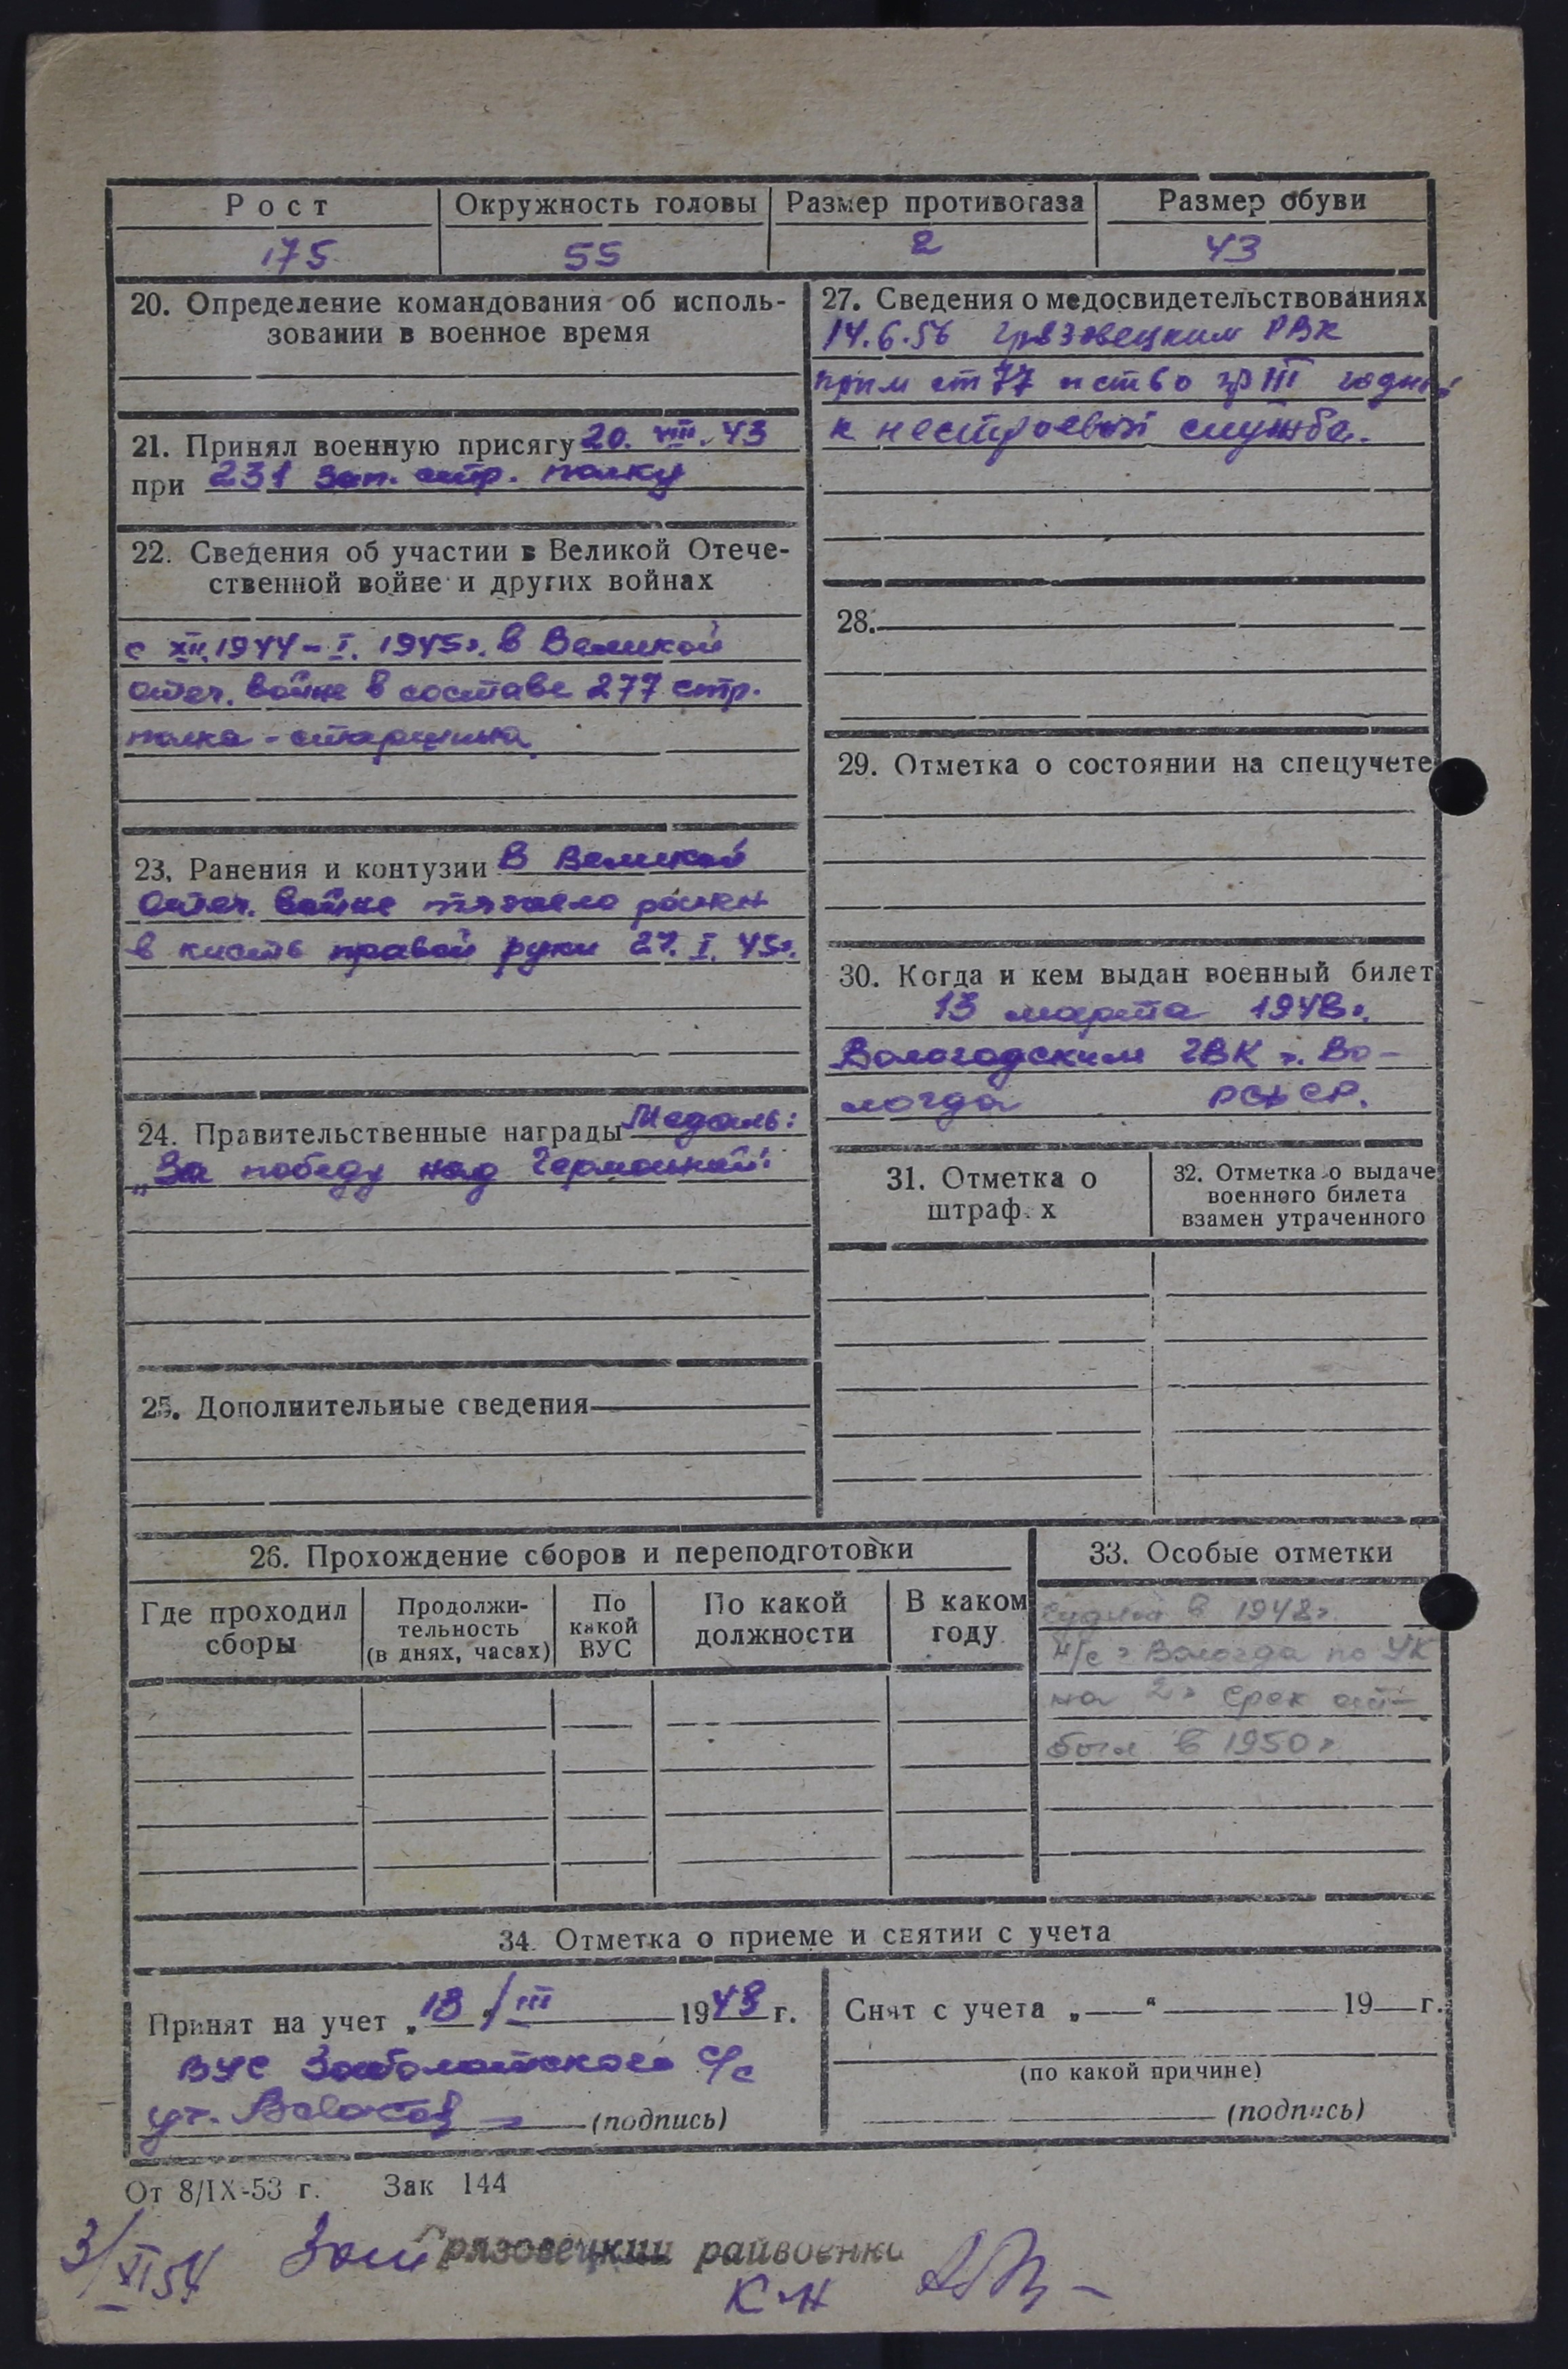 Рост
Окружность головы
Размер противогаза
Размер обуви
175
55
2
43
20. Определение командования об исполь-
зовании в военное время
21. Принял военную присягу 20. VIII. 43
при 231 Зап. стр. полку
22. Сведения об участии в Великой Отече-
ственной войне и других войнах
с XII.1944 - I. 1945г. в Великой
Отеч. войне в составе 277 стр.
полка - старшина
23. Ранения и контузии В Великой
Отеч. войне тяжело ранен
в кисть правой руки 27. I. 45г.
24. Правительственные награды Медаль:
„За победу над Германией"
25. Дополнительные сведения
27. Сведения о медосвидетельствованиях
14.6.56 Грязовецким РВК
ст 77 гр III годный
к нестроевой службе.
28.
29. Отметка о состоянии на спецучете
30. Когда и кем выдан военный билет
13 марта 1948г.
Вологодским ГВК г. Во-
логда РСФСР.
31. Отметка о
штраф. х
32. Отметка о выдаче
военного билета
взамен утраченного
26. Прохождение сборов и переподготовки
Где проходил
сборы
Продолжи-
тельность
(в днях, часах)
По
какой
ВУС
По какой
должности
В каком
году
33. Особые отметки
Судим в 1948г.
Н/с г Вологда по УК
на 2г срок от-
был в 1950г
34. Отметка о приеме и снятии с учета
Принят на учет „13" III 1948 г.
ВУС Заболотского С/с
(подпись)
Снят с учета „ “ 19 г.
(по какой причине)
(подпись)
От 8/IX-53 г. Зак 144
3/XI 54
Грязовецкий райвоенко